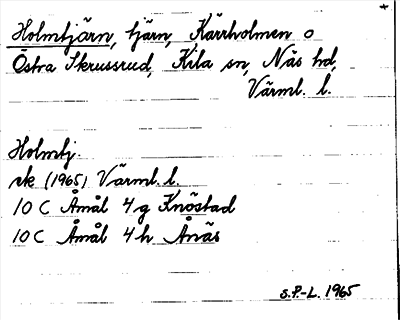 Holmtjärn, tjärn, Kärrholmen o
Östra Skrussrud, Kila sn, Näs hd,
Värml. l.
Holmtj.
ek (1965) Värml. l.
10 C Åmål 4 g Knöstad
10 C Åmål 4 h Ånäs
S.P.-L. 1965